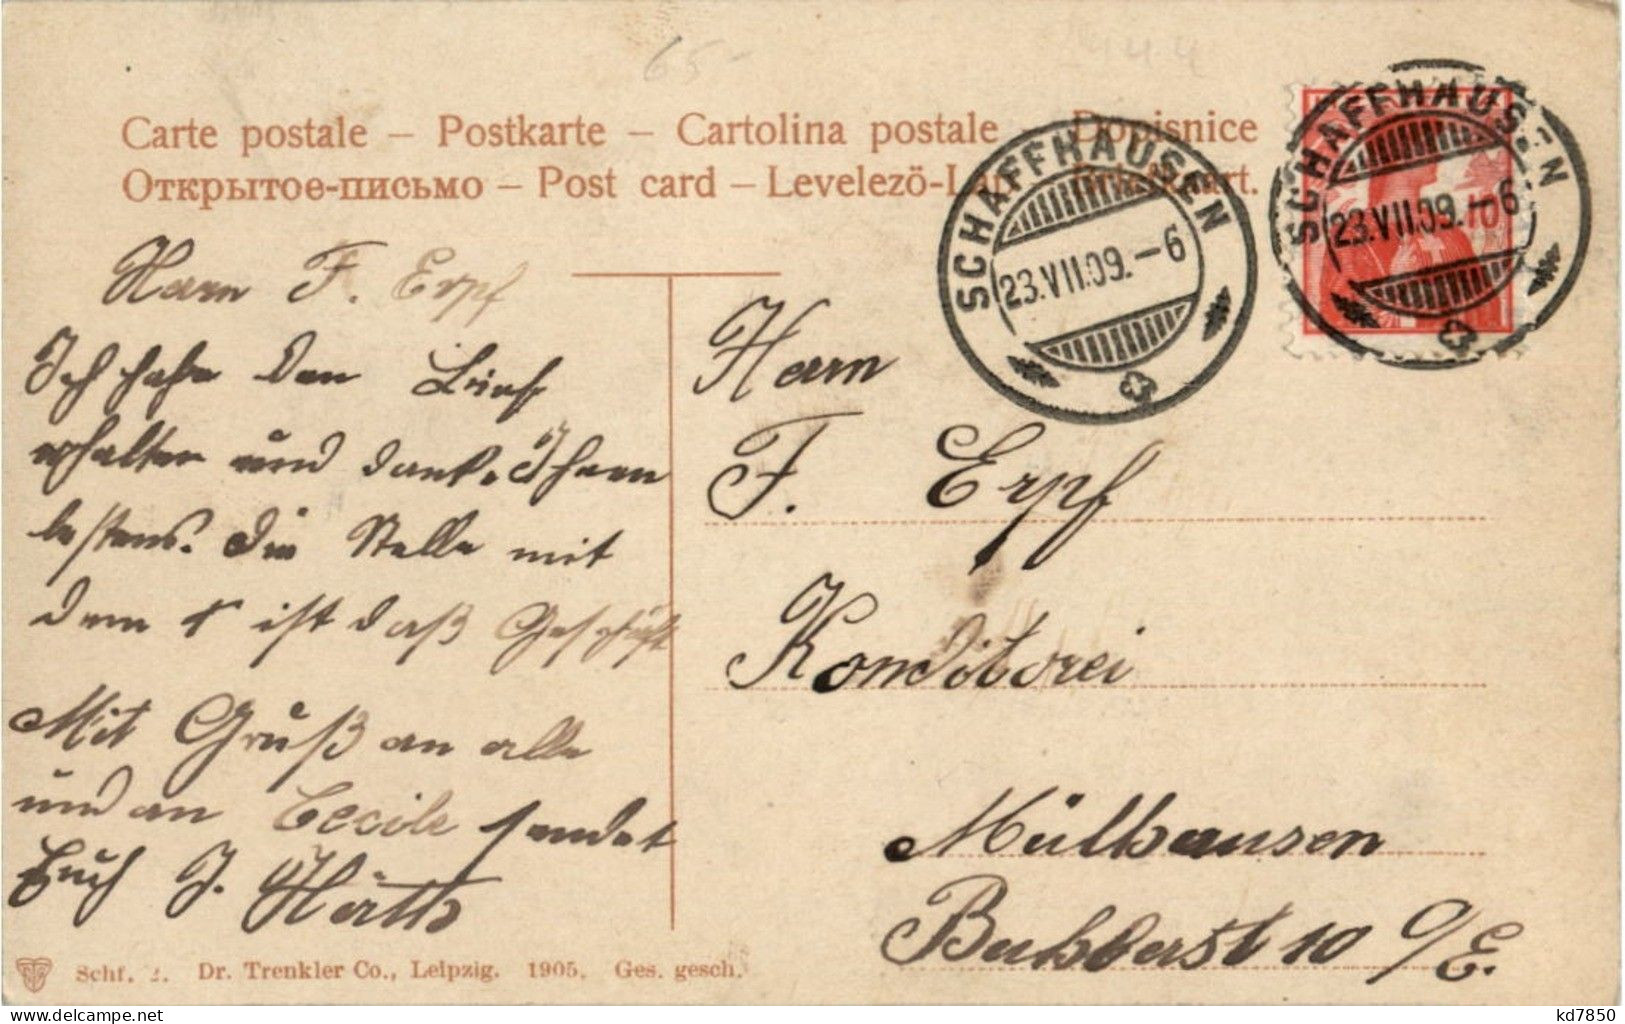 65-
Carte postale – Postkarte – Cartolina postale – Dopisnice
Открытое-письмо – Post card – Levelező-L
SCHAFFHAUSEN
23.VII.09.–6
SCHAFFHAUSEN
23.VII.09.–6
10
Herrn F. Erpf
Ich habe den Brief
erhalten und danke Ihnen
bestens. Die Stelle mit
dem ist daß Geschäft
Mit Gruß an alle
und an Cecile sendet
Euch J.
Herrn
F. Erpf
Konditorei
Mülhausen
10 O/E.
Schf. 2. Dr. Trenkler Co., Leipzig. 1905. Ges. gesch.
kd7850